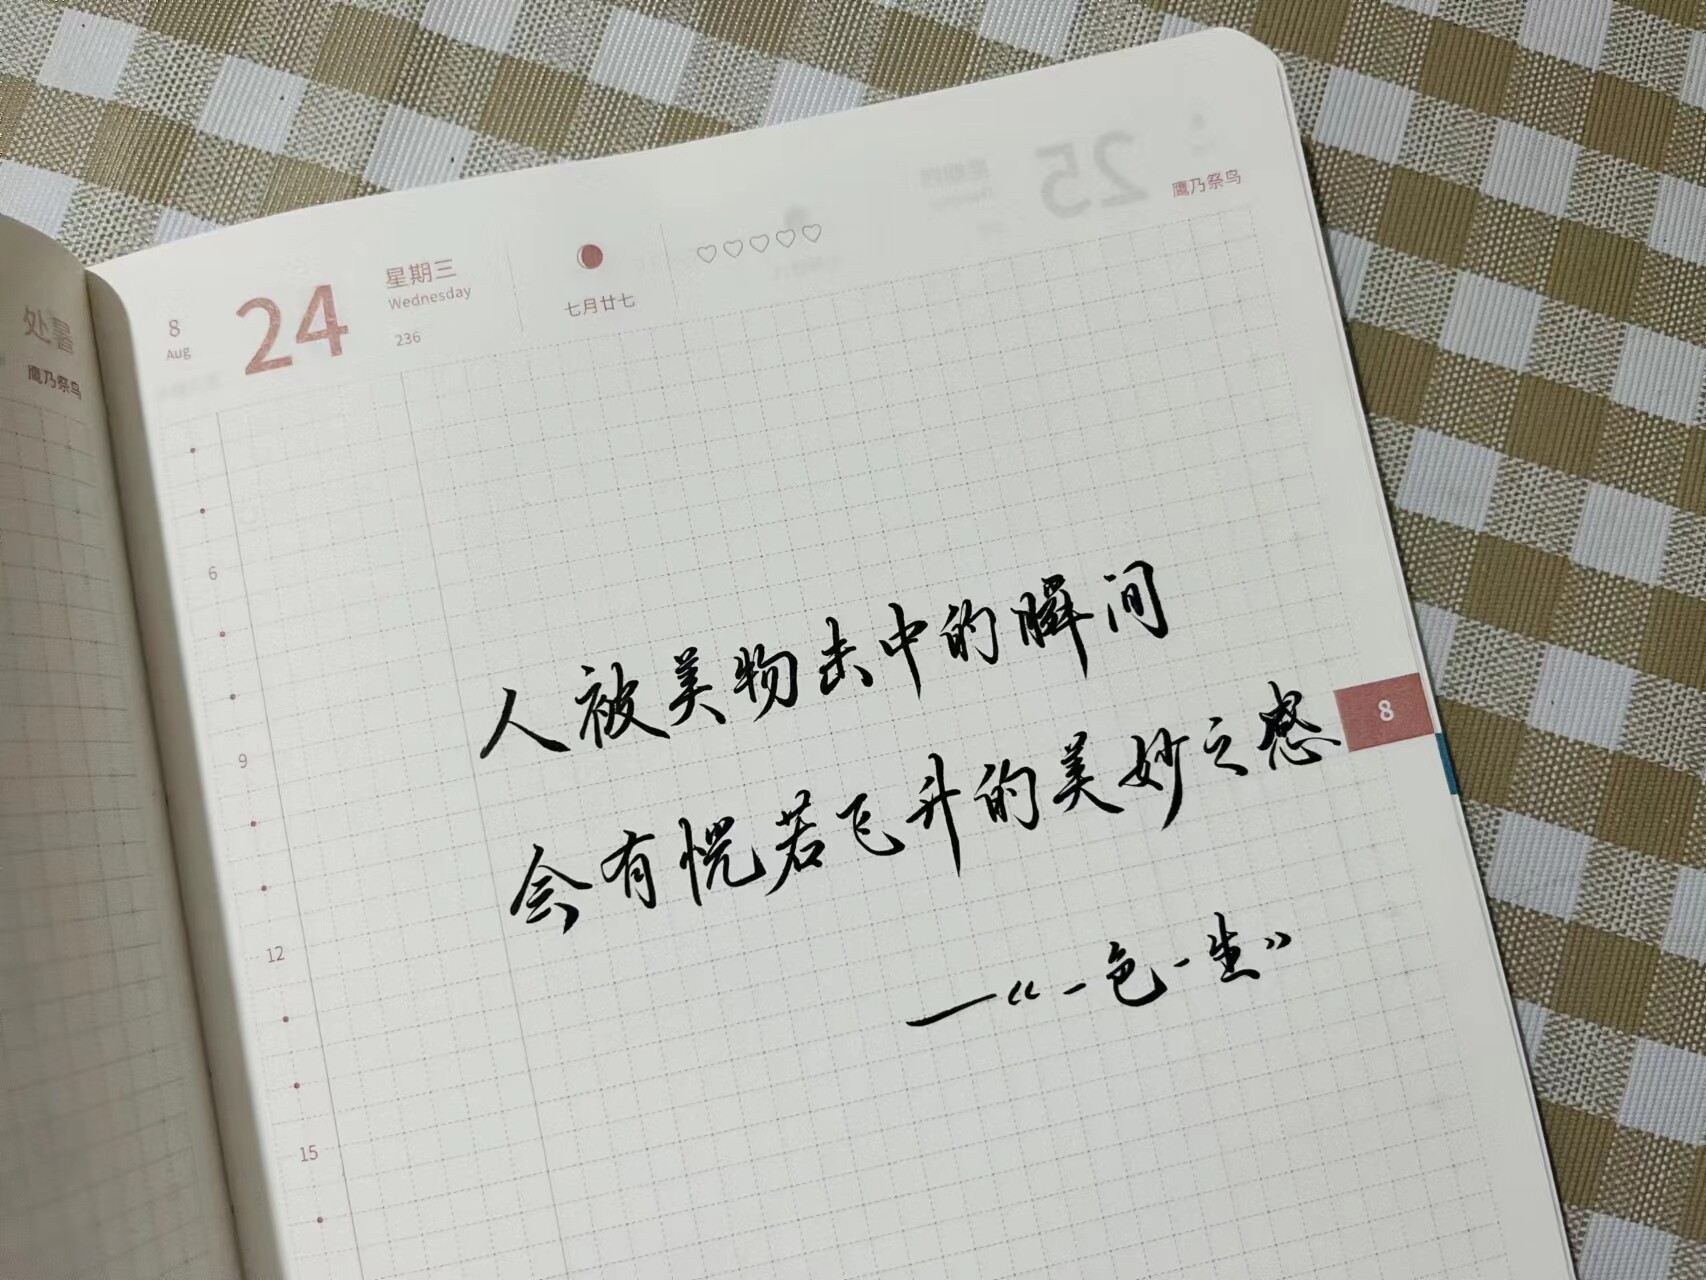 处暑
鹰乃祭鸟
8
Aug
24
星期三
Wednesday
236
七月廿七
25
鹰乃祭鸟
6
9
12
15
8
人被美物击中的瞬间
会有恍若飞升的美妙之感
—《一色一生》